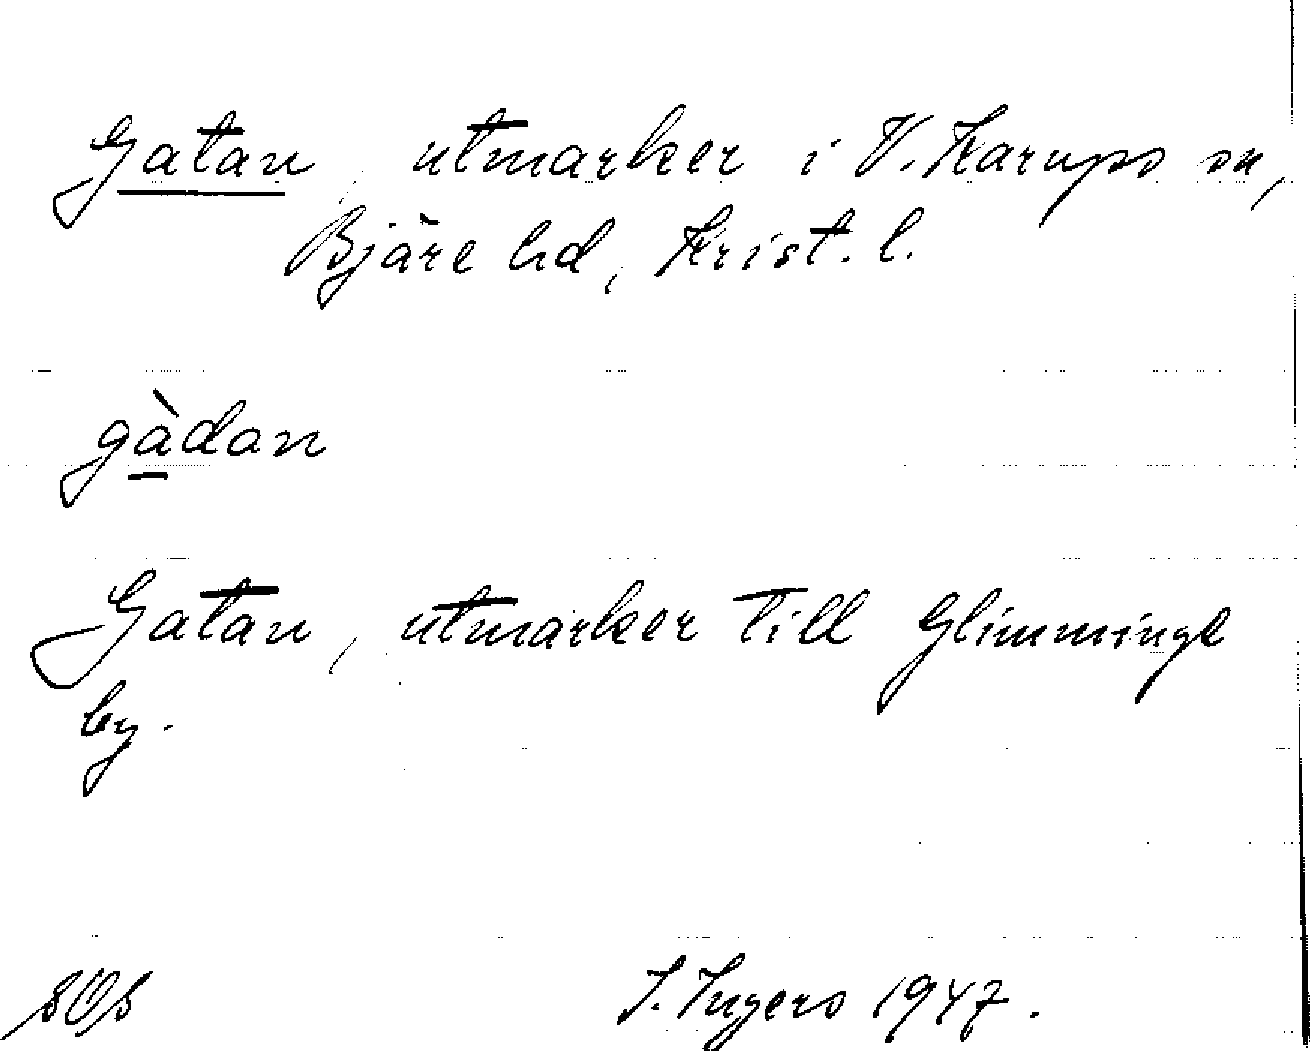 Gatan, utmarker i V. Karups sn,
Bjäre hd, Krist. l.
gàdan
Gatan, utmarker till Glimminge
by.
I. Ingers 1947.